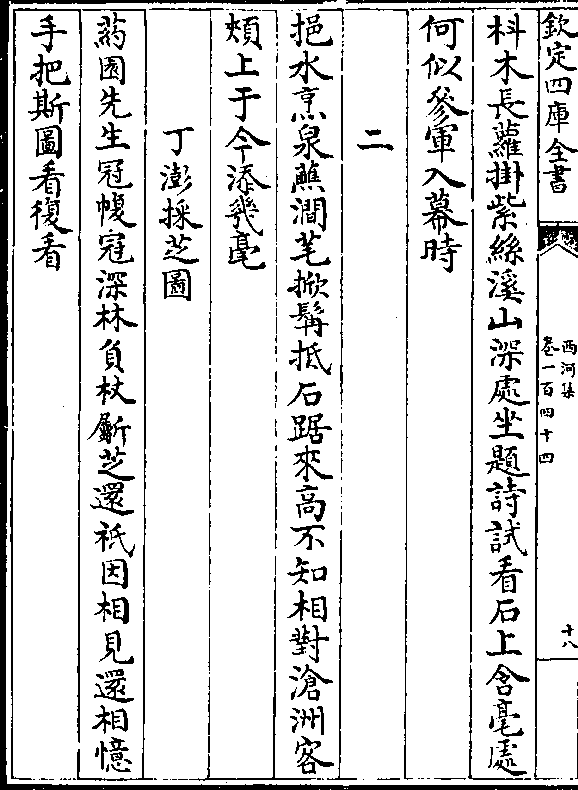 欽定四庫全書
西河集
卷一百四十四
十八
枓木長蘿掛紫絲溪山深處坐題詩試看石上含毫處
何似參軍入幕時
二
挹水烹泉蘸澗芼掀髯抵石踞來高不知相對滄洲客
頰上于今添幾毫
丁澎採芝圖
葯園先生冠㡊冠深林負杖斸芝還祇因相見還相憶
手把斯圖看復看